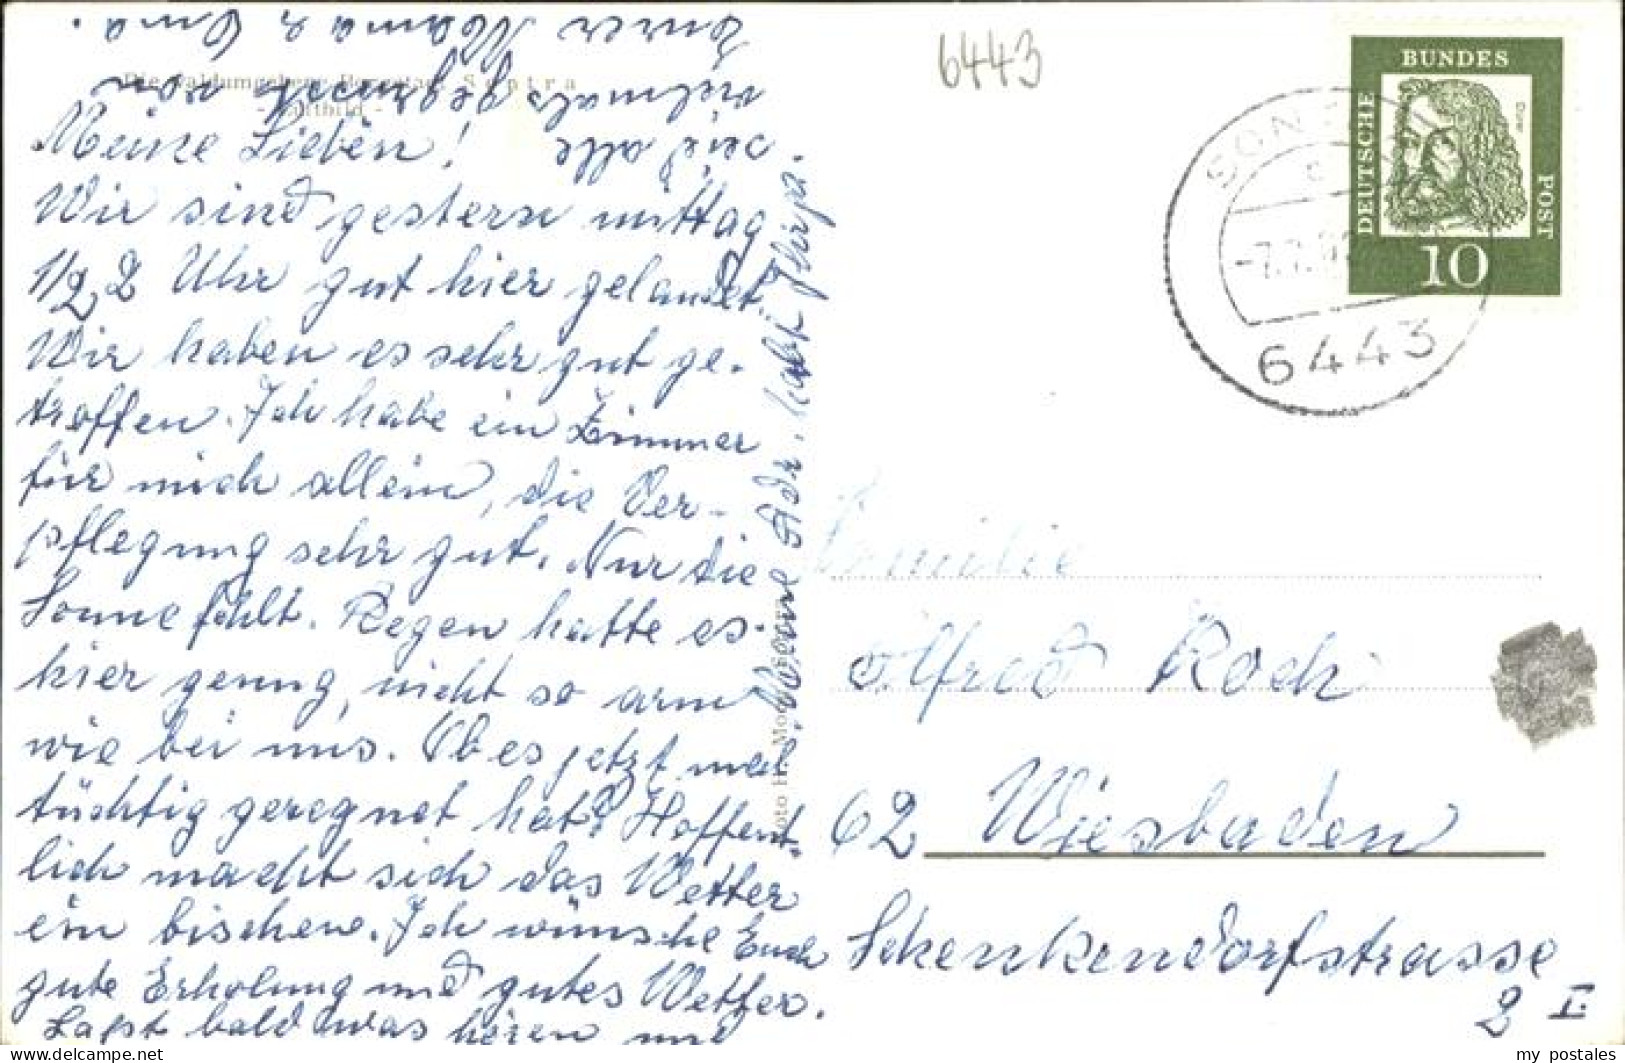 6443
BUNDES
DEUTSCHE
POST
10
SON
6443
Die waldumgebene Bergstadt Sontra
- Luftbild -
Meine Lieben!
Wir sind gestern mittag
1/2 2 Uhr gut hier gelandet.
Wir haben es sehr gut ge-
troffen. Ich habe ein Zimmer
für mich allein, die Ver-
pflegung sehr gut. Nur die
Sonne fehlt. Regen hatte es
hier genug, nicht so arm
wie bei uns. Ob es jetzt mal
tüchtig geregnet hat? Hoffent-
lich macht sich das Wetter
ein bischen. Ich wünsche Euch
gute Erholung und gutes Wetter.
Laßt bald was hören und
seid alle
vielmals gegrüßt von
Eurer Mama & Oma.
Meine Adr. habt Ihr ja.
Foto H.
Familie
Alfred Koch
62 Wiesbaden
Schenkendorfstrasse
2 I.
my postales